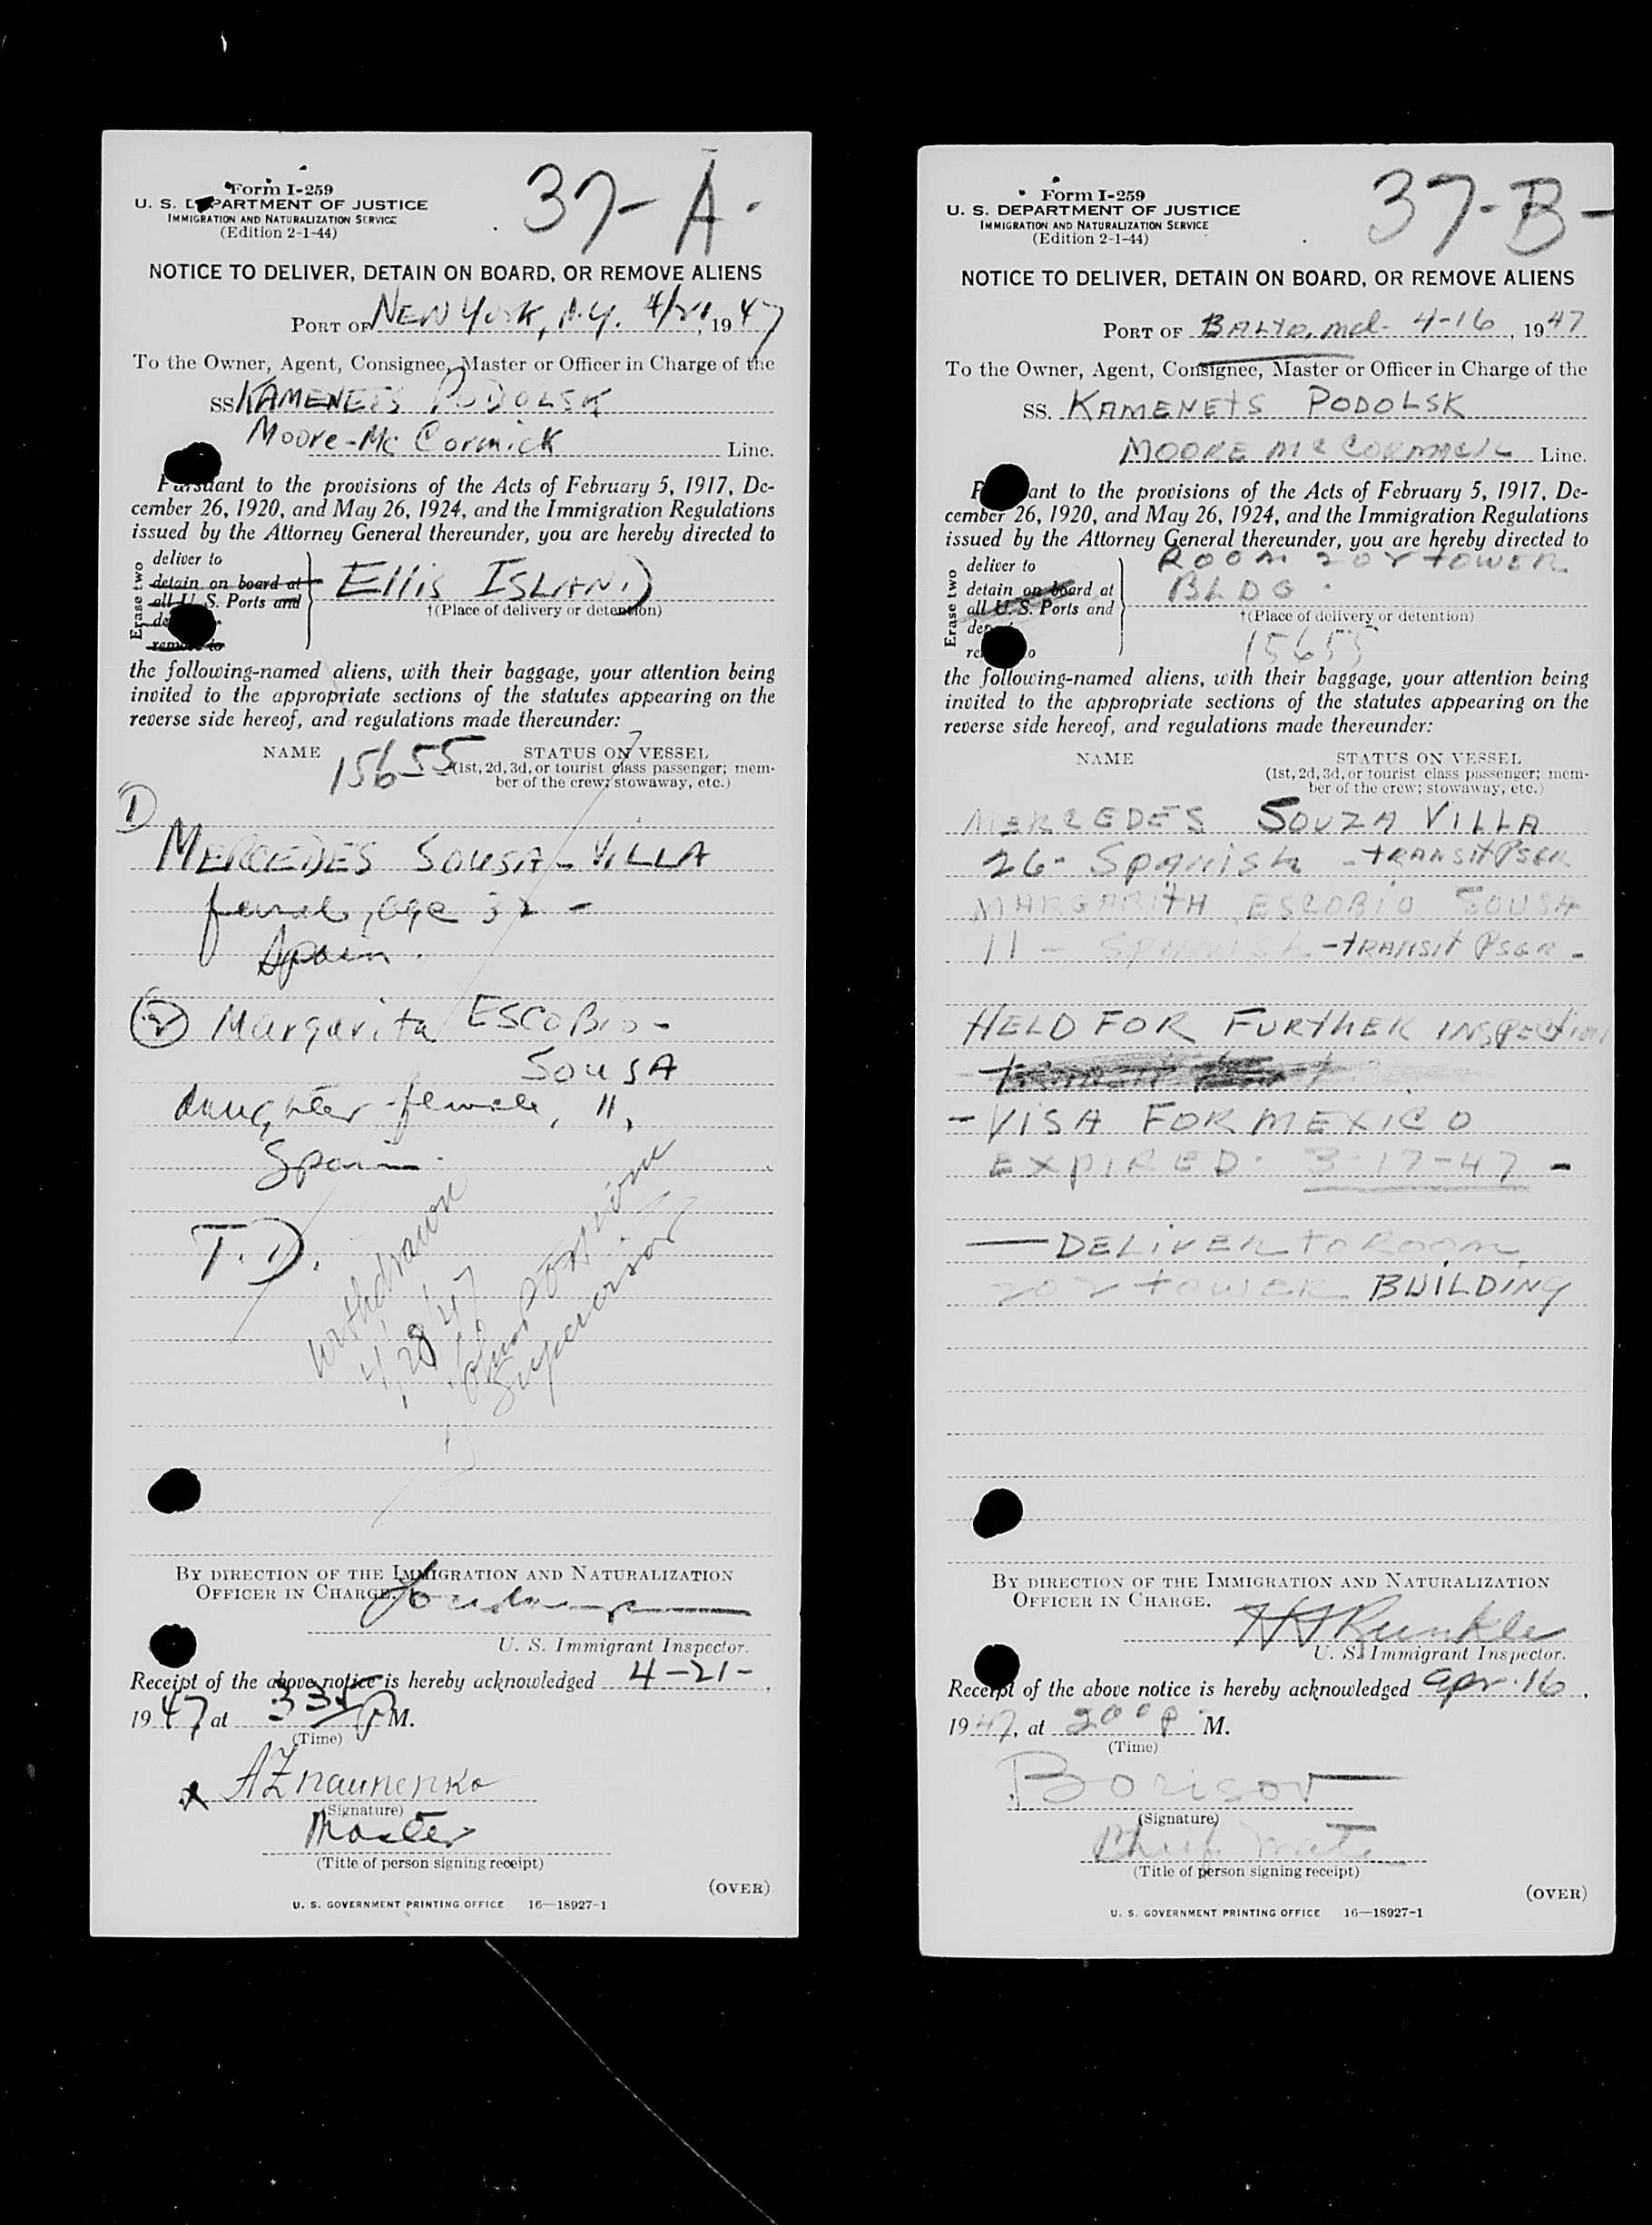 37-A-
Form I-259
U. S. DEPARTMENT OF JUSTICE
IMMIGRATION AND NATURALIZATION SERVICE
(Edition 2-1-44)
NOTICE TO DELIVER, DETAIN ON BOARD, OR REMOVE ALIENS
PORT OF NEW YORK, N.Y. 4/21, 1947
To the Owner, Agent, Consignee, Master or Officer in Charge of the
SS KAMENETS PODOLSK
Moore-McCormick Line.
Pursuant to the provisions of the Acts of February 5, 1917, De-
cember 26, 1920, and May 26, 1924, and the Immigration Regulations
issued by the Attorney General thereunder, you are hereby directed to
Erase two
deliver to
detain on board at
all U. S. Ports and
remove to
Ellis ISLAND
†(Place of delivery or detention)
the following-named aliens, with their baggage, your attention being
invited to the appropriate sections of the statutes appearing on the
reverse side hereof, and regulations made thereunder:
NAME 15655 STATUS ON VESSEL
(1st, 2d, 3d, or tourist class passenger; mem-
ber of the crew; stowaway, etc.)
1
MERCEDES SOUSA-VILLA
female, age 32 -
Spain.
2 Margarita ESCOBIO-
SOUSA
daughter-female, 11,
Spain.
T.D.
withdrawn
4/28/47
Supervisor
BY DIRECTION OF THE IMMIGRATION AND NATURALIZATION
OFFICER IN CHARGE.
U. S. Immigrant Inspector.
Receipt of the above notice is hereby acknowledged 4-21-,
1947, at 335 P M.
(Time)
x AZnaunenko
(Signature)
Master
(Title of person signing receipt)
(OVER)
U. S. GOVERNMENT PRINTING OFFICE 16—18927-1
37-B-
Form I-259
U. S. DEPARTMENT OF JUSTICE
IMMIGRATION AND NATURALIZATION SERVICE
(Edition 2-1-44)
NOTICE TO DELIVER, DETAIN ON BOARD, OR REMOVE ALIENS
PORT OF BALTO. md. 4-16, 1947
To the Owner, Agent, Consignee, Master or Officer in Charge of the
SS. KAMENETS PODOLSK
MOORE McCORMACK Line.
Pursuant to the provisions of the Acts of February 5, 1917, De-
cember 26, 1920, and May 26, 1924, and the Immigration Regulations
issued by the Attorney General thereunder, you are hereby directed to
Erase two
deliver to
detain on board at
all U. S. Ports and
ROOM 202 TOWER
BLDG.
†(Place of delivery or detention)
15655
the following-named aliens, with their baggage, your attention being
invited to the appropriate sections of the statutes appearing on the
reverse side hereof, and regulations made thereunder:
NAME STATUS ON VESSEL
(1st, 2d, 3d, or tourist class passenger; mem-
ber of the crew; stowaway, etc.)
MERCEDES SOUZA VILLA
26- SPANISH - TRANSIT PSGR
MARGARITA ESCOBIO SOUSA
11 - SPANISH - TRANSIT PSGR -
HELD FOR FURTHER INSPECTION
- VISA FOR MEXICO
EXPIRED- 3-17-47 -
— DELIVER TO ROOM
202 TOWER BUILDING
BY DIRECTION OF THE IMMIGRATION AND NATURALIZATION
OFFICER IN CHARGE.
HHRunkle
U. S. Immigrant Inspector.
Receipt of the above notice is hereby acknowledged Apr. 16,
1947, at 200 P M.
(Time)
Borisov
(Signature)
Chief mate
(Title of person signing receipt)
(OVER)
U. S. GOVERNMENT PRINTING OFFICE 16—18927-1